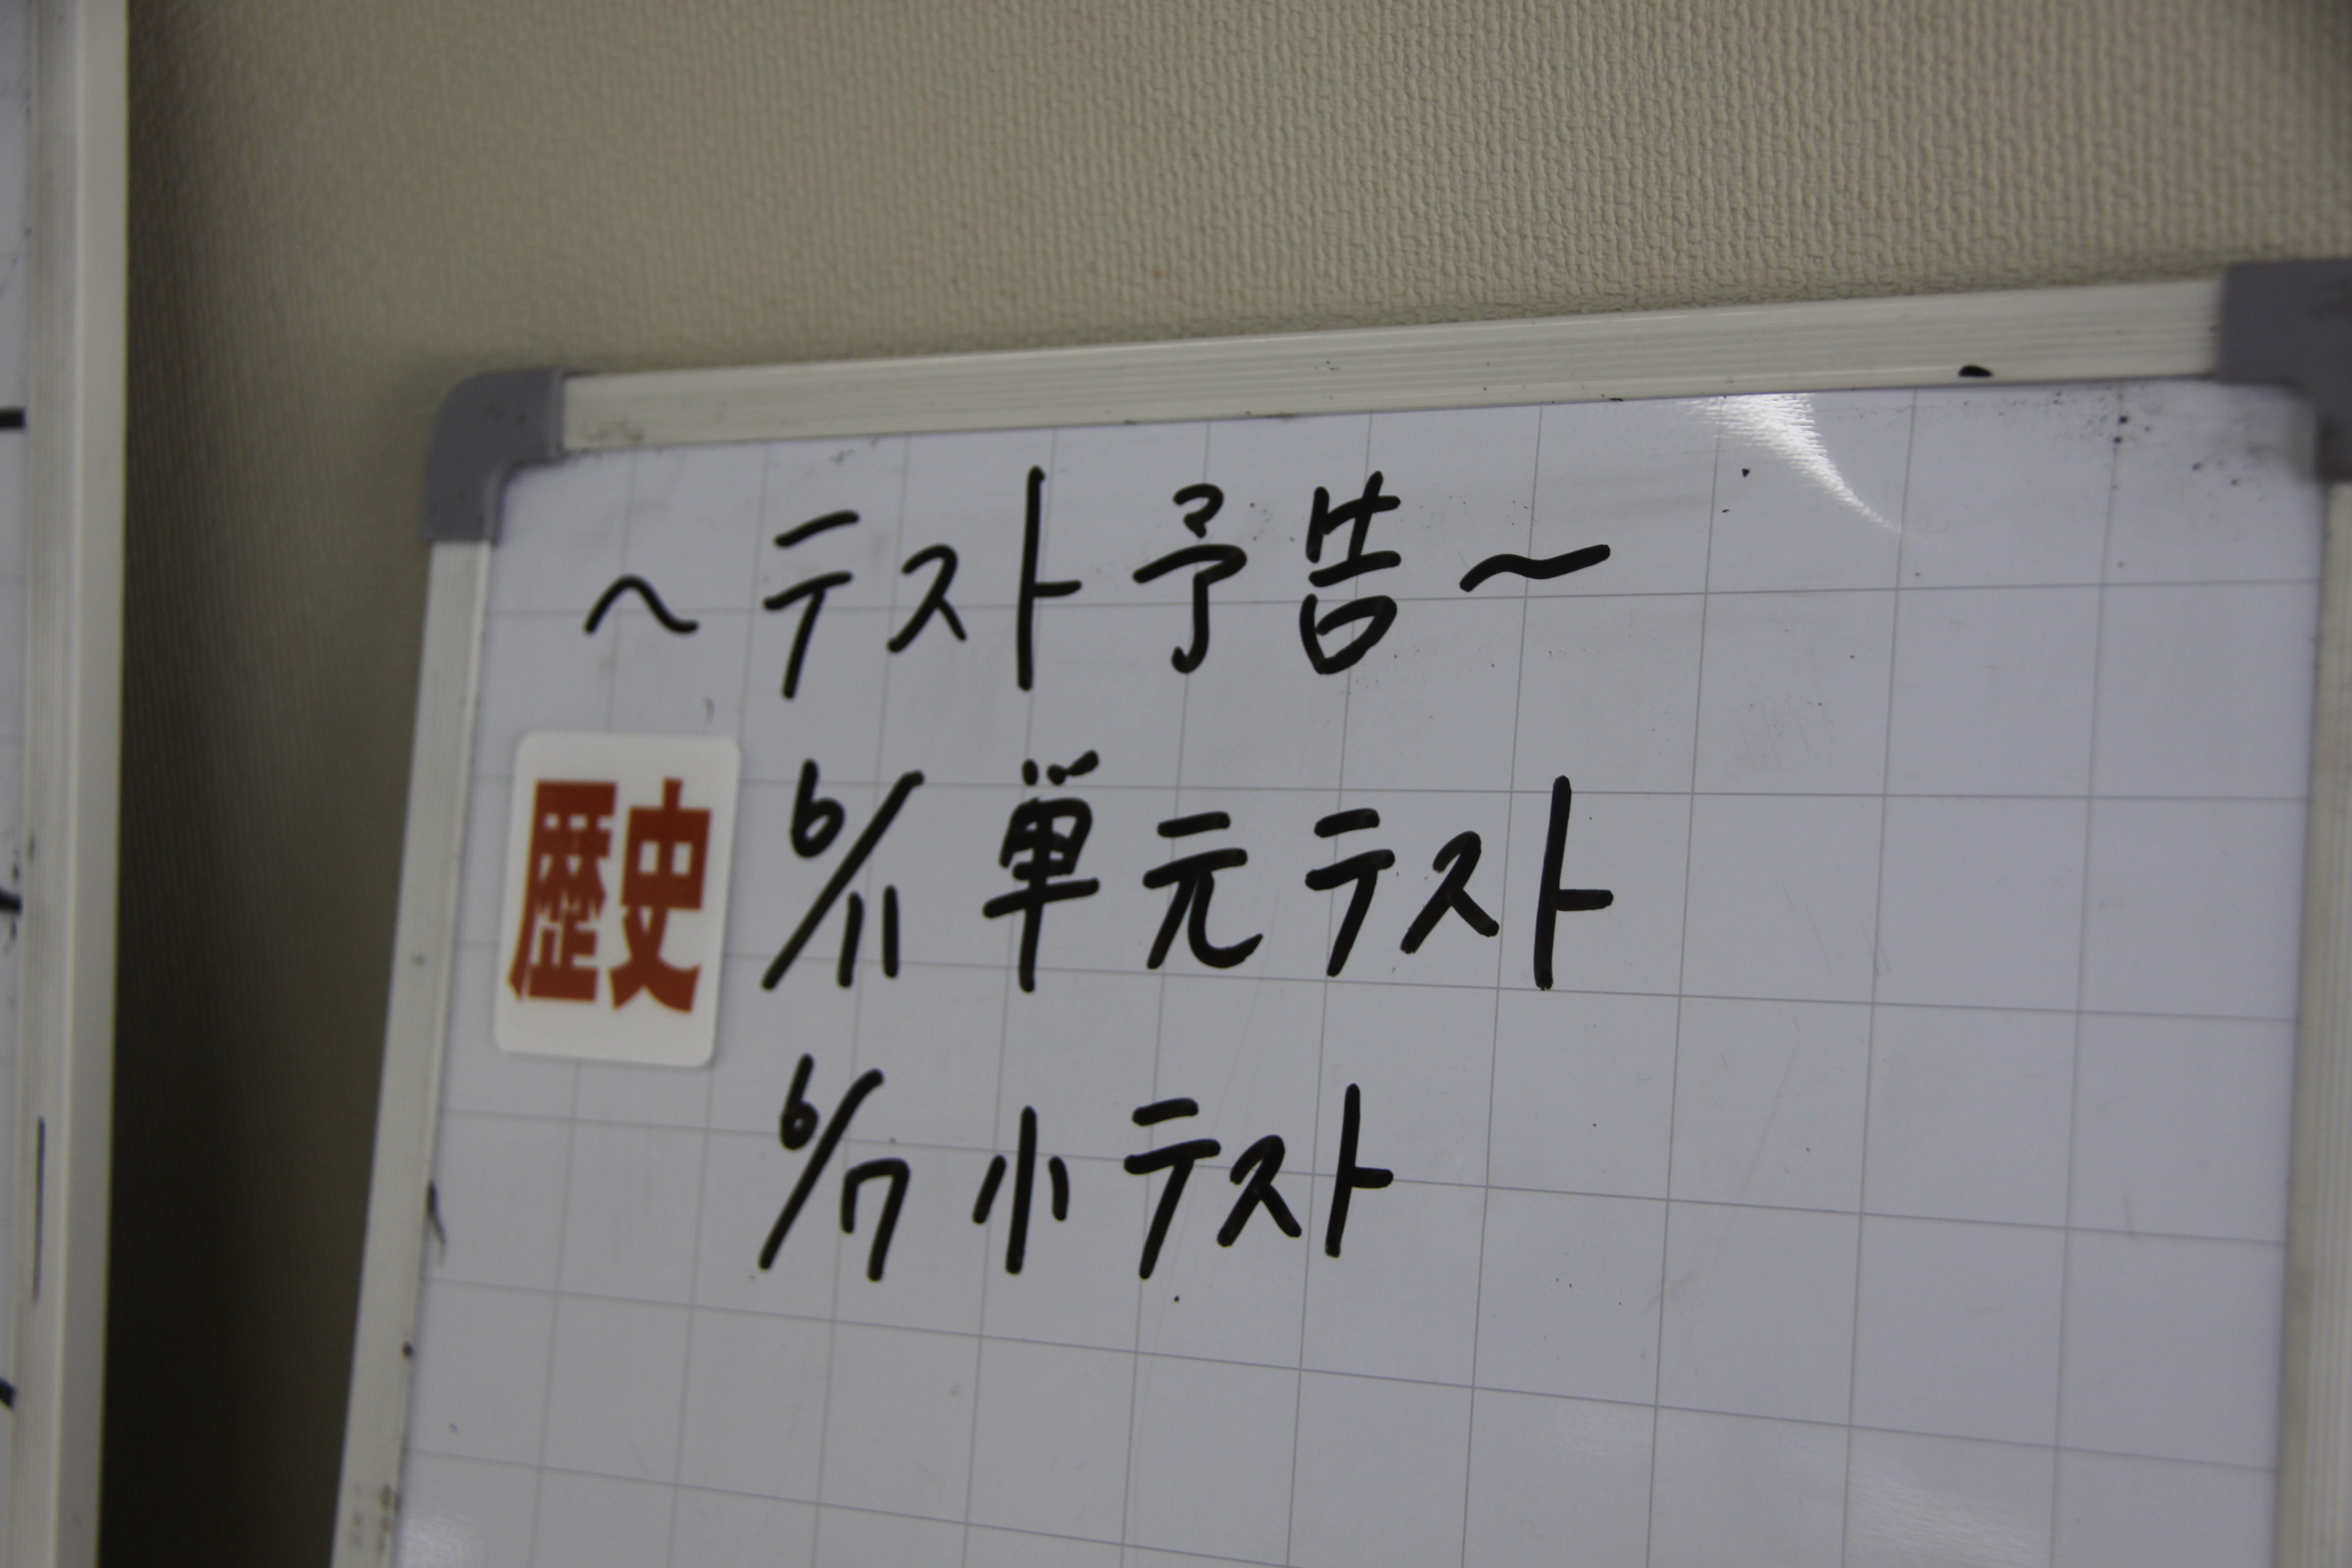 〜テスト予告〜
歴史 6/11 単元テスト
6/7 小テスト